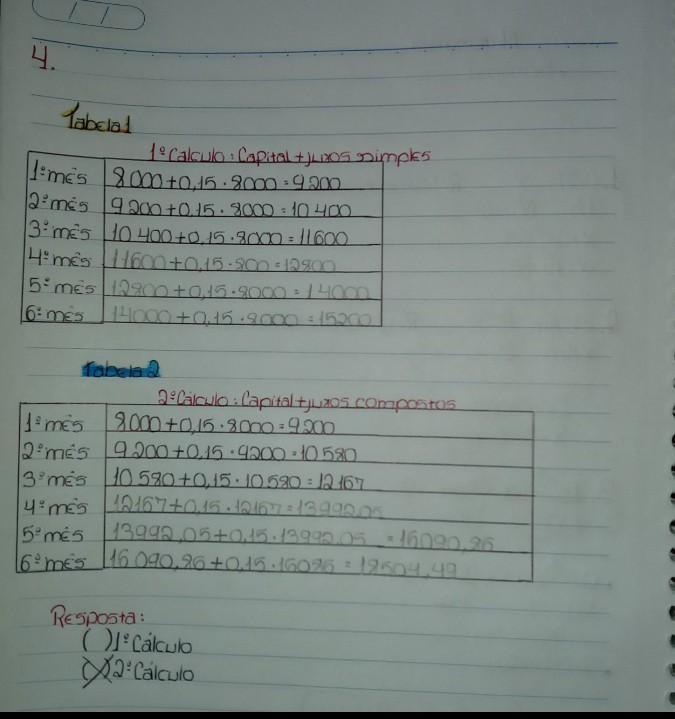 4.
Tabela 1
1º Cálculo: Capital + juros simples
1º mês 8000 + 0,15 · 8000 = 9200
2º mês 9200 + 0,15 · 8000 = 10400
3º mês 10400 + 0,15 · 8000 = 11600
4º mês 11600 + 0,15 · 800 = 12800
5º mês 12800 + 0,15 · 8000 = 14000
6º mês 14000 + 0,15 · 8000 = 15200
Tabela 2
2º Cálculo: Capital + juros compostos
1º mês 8000 + 0,15 · 8000 = 9200
2º mês 9200 + 0,15 · 9200 = 10580
3º mês 10580 + 0,15 · 10580 = 12167
4º mês 12167 + 0,15 · 12167 = 13992,05
5º mês 13992,05 + 0,15 · 13992,05 = 16090,86
6º mês 16090,86 + 0,15 · 16086 = 18504,49
Resposta:
( ) 1º Cálculo
(X) 2º Cálculo